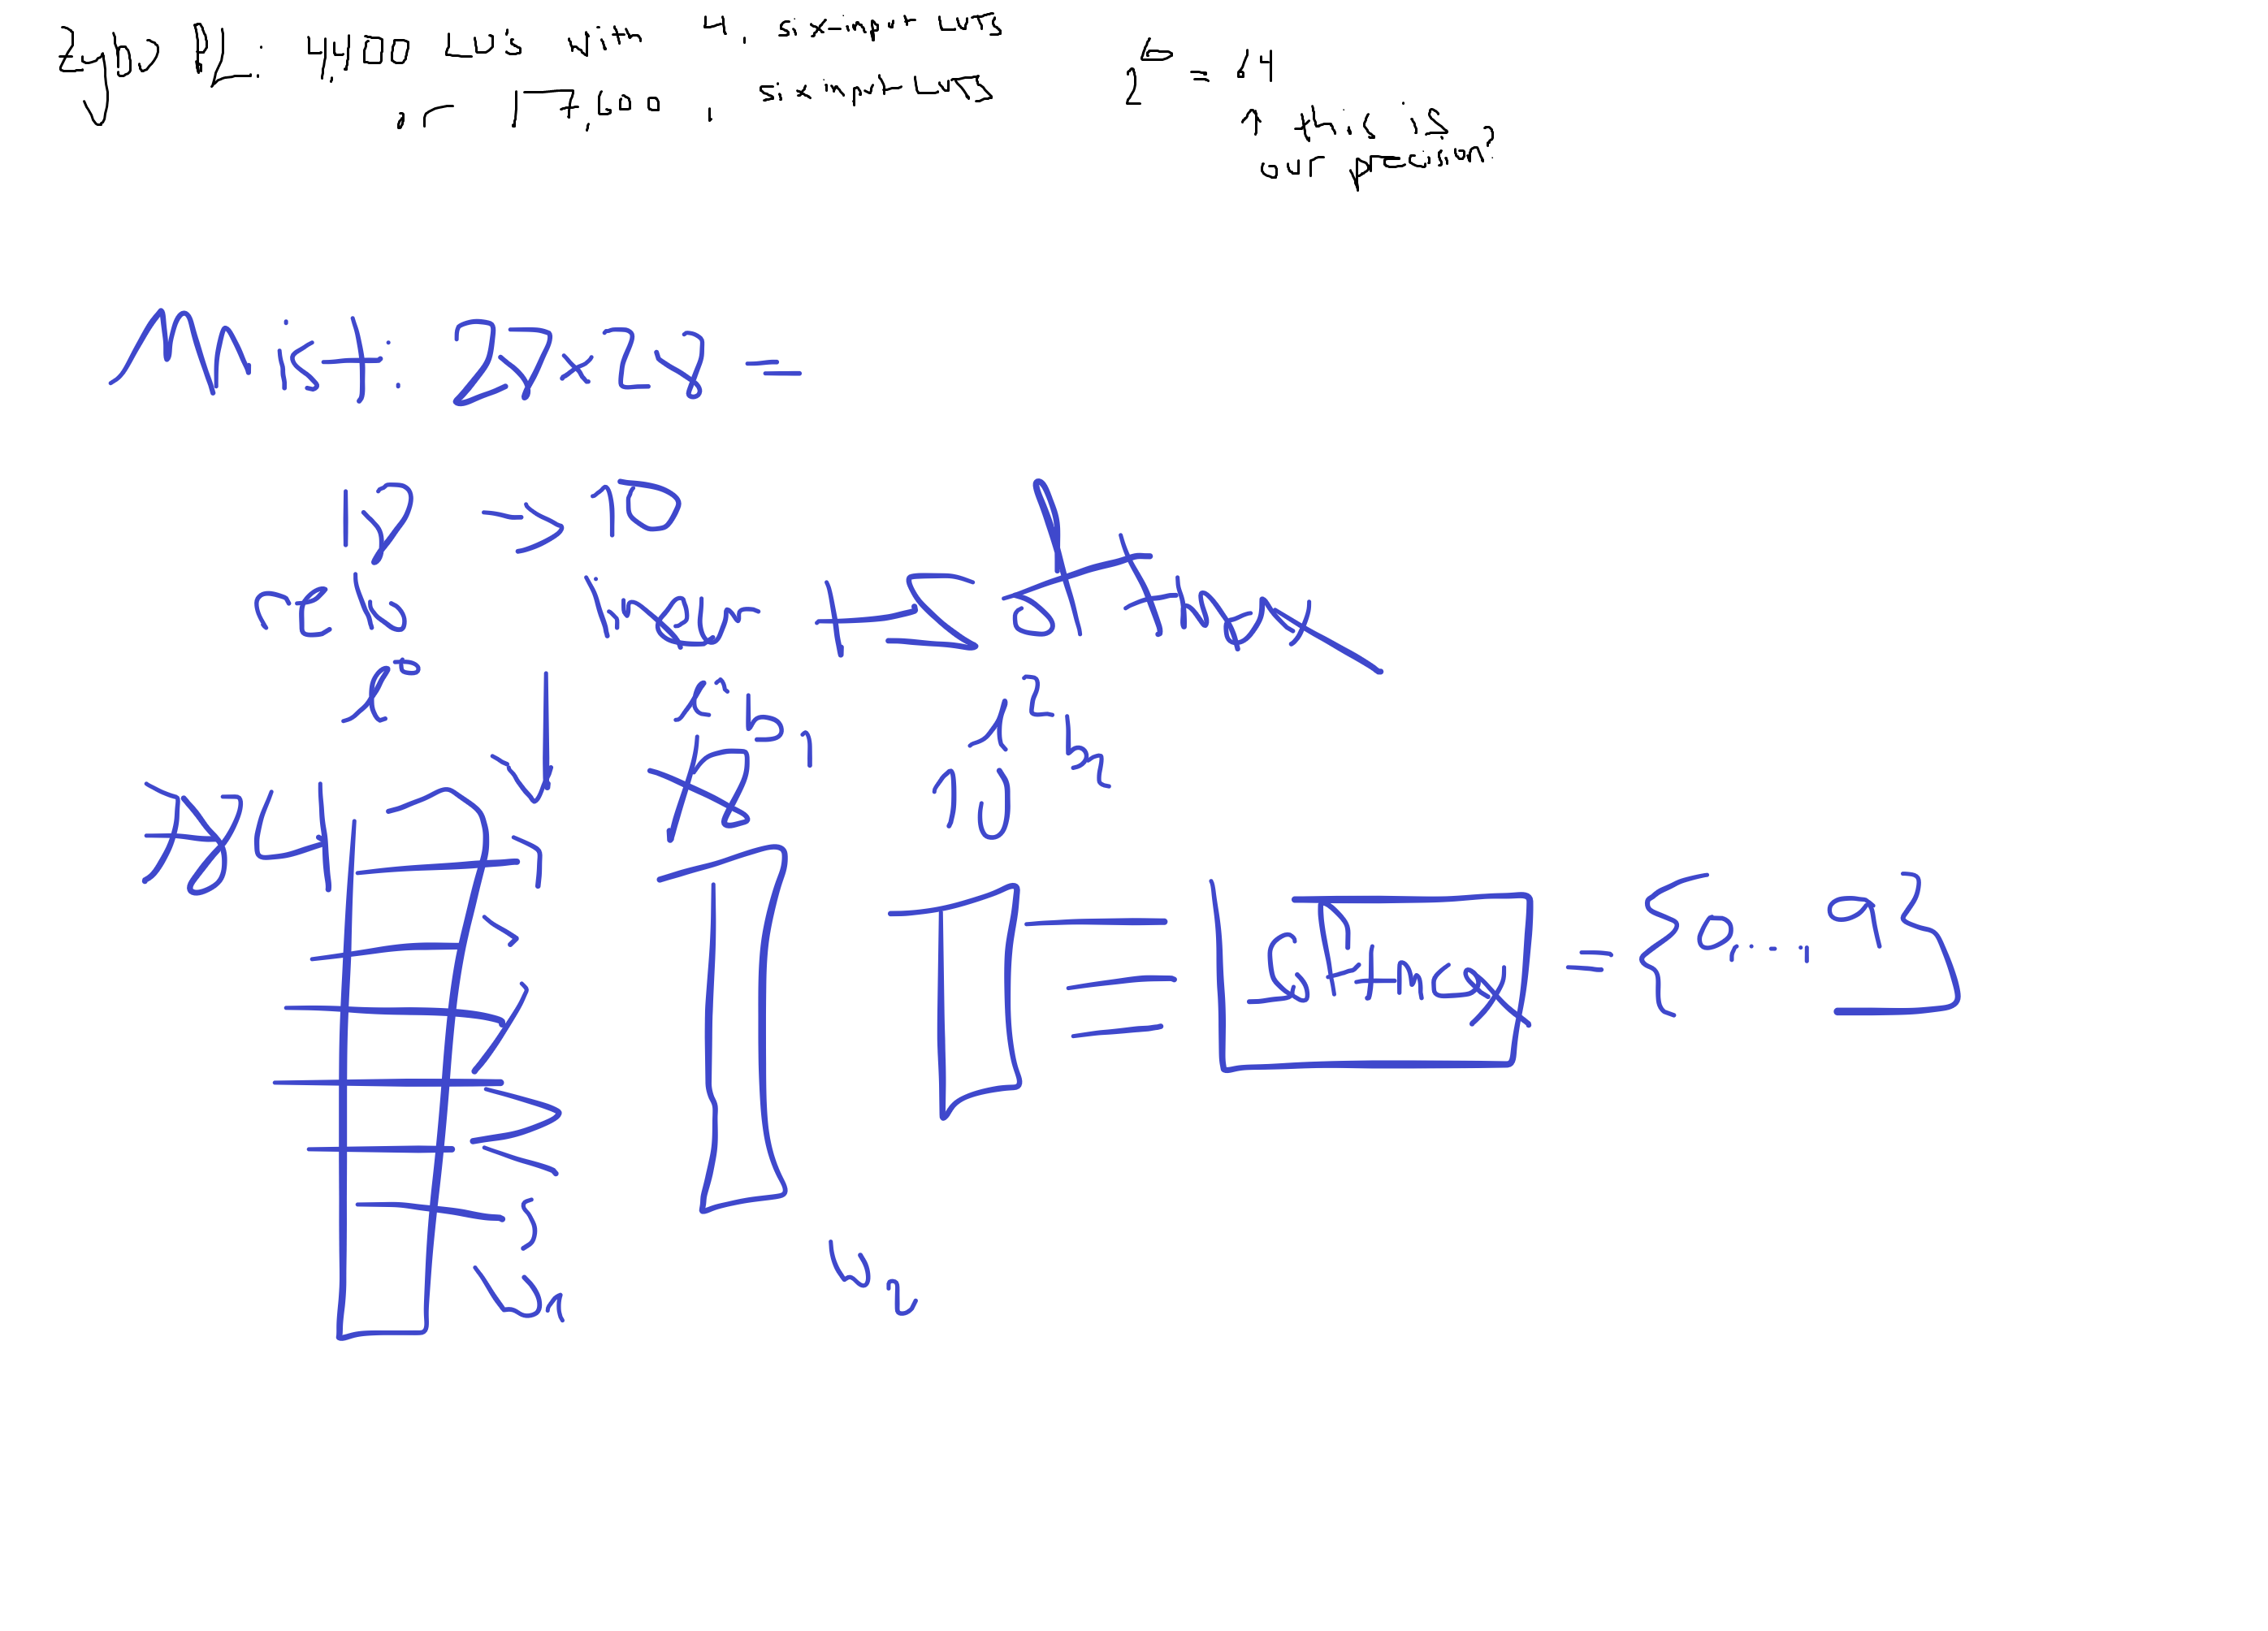 Zybo PL: 4,400 LUs with 4, six-input LUTS
or 17,600, six input LUTS
2^6 = 64
↑ this is our precision?
Mnist: 28x28 =
18 → 10
relu linear + softmax
l^0 l^1 b1 l^2 b2
784 18 10
softmax = {0, ..., 9}
w1 w2